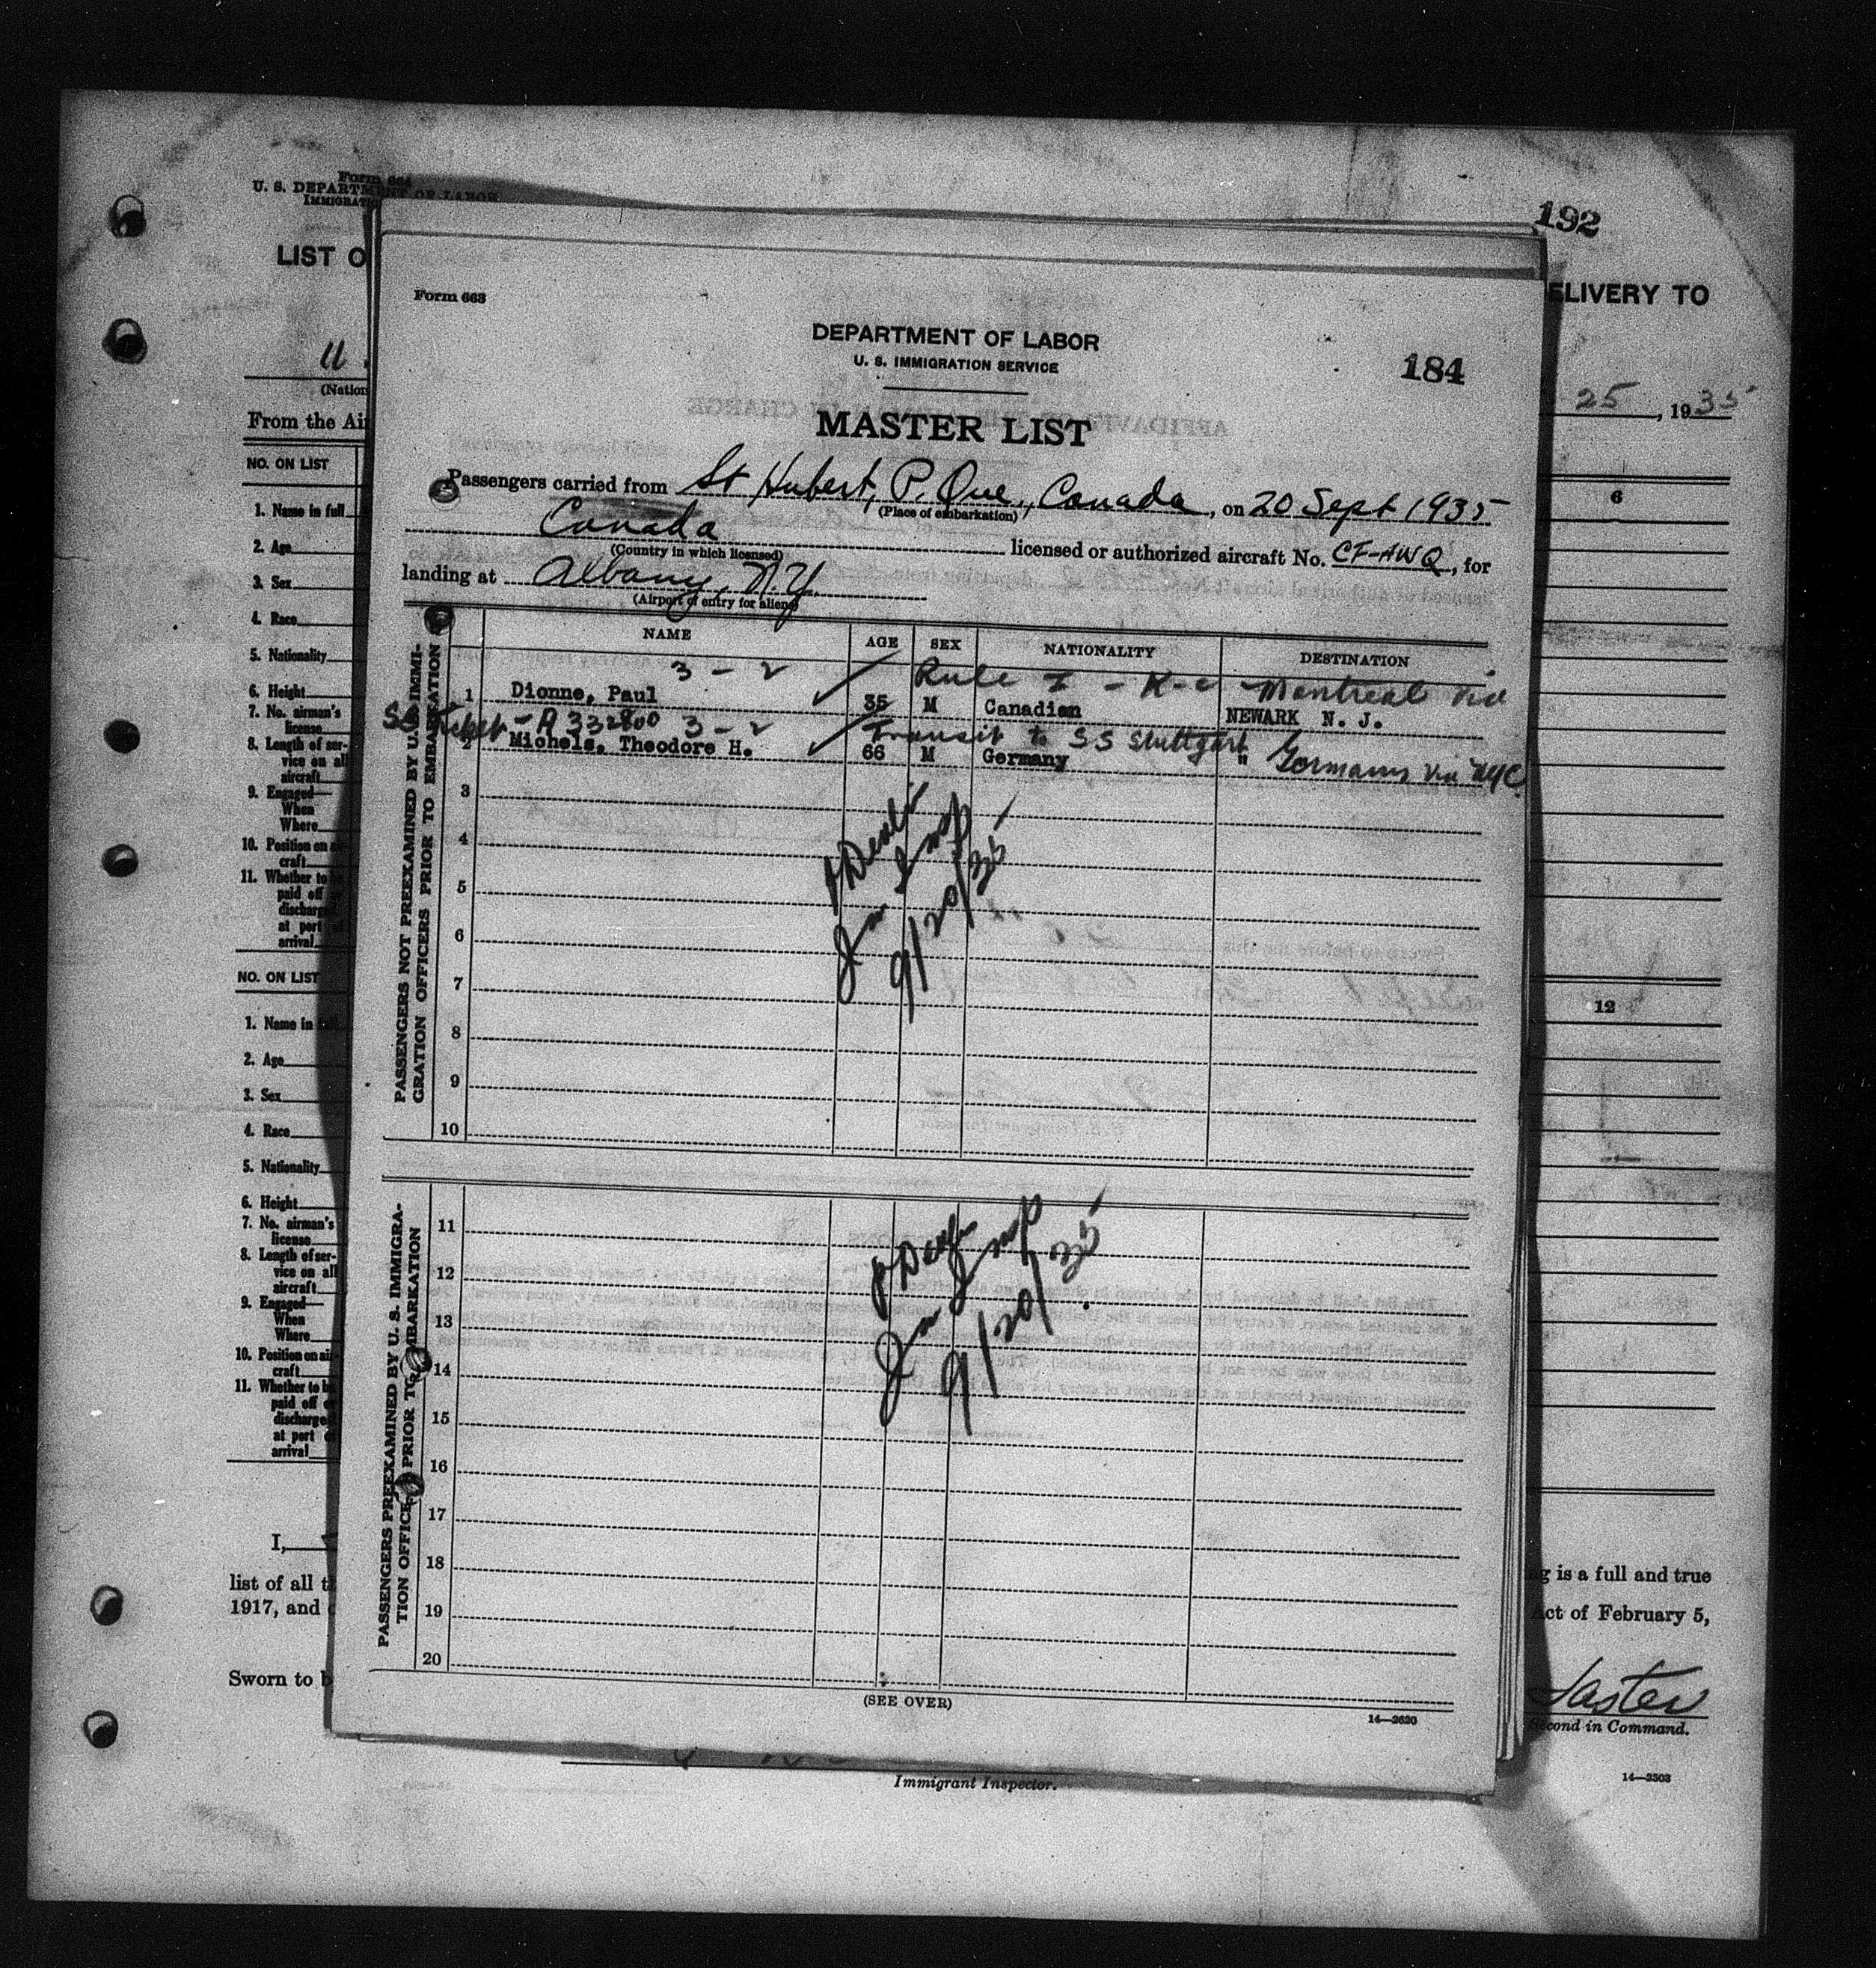 Form 664
U. S. DEPARTMENT OF LABOR
IMMIGRAT
192
LIST O
ELIVERY TO
(Nation
25, 1935
From the Air
NO. ON LIST
6
1. Name in full
2. Age
3. Sex
4. Race
5. Nationality
6. Height
7. No. airman's
license
8. Length of ser-
vice on all
aircraft
9. Engaged—
When
Where
10. Position on air-
craft
11. Whether to be
paid off or
discharged
at port of
arrival
NO. ON LIST
12
1. Name in
2. Age
3. Sex
4. Race
5. Nationality
6. Height
7. No. airman's
license
8. Length of ser-
vice on all
aircraft
9. Engaged—
When
Where
10. Position on air-
craft
11. Whether to be
paid off or
discharged
at port of
arrival
I,
list of all th
g is a full and true
1917, and
Act of February 5,
Sworn to b
Second in Command.
Immigrant Inspector.
14—2503
Form 663
DEPARTMENT OF LABOR
U. S. IMMIGRATION SERVICE
184
MASTER LIST
Passengers carried from St Hubert, P. Que., Canada, on 20 Sept 1935
(Place of embarkation)
Canada licensed or authorized aircraft No. CF-AWQ, for
(Country in which licensed)
landing at Albany, N.Y.
(Airport of entry for aliens)
NAME AGE SEX NATIONALITY DESTINATION
3 - 2 Rule I - K-c - Montreal via
1 Dionne, Paul 35 M Canadian NEWARK N. J.
Ticket - A 332800 3 - 2 Transit to SS Stuttgart Germany via NYC
2 Michels, Theodore H. 66 M Germany "
3
4
5
6
7
8
9
10
Imm Insp
9/20/35
PASSENGERS NOT PREEXAMINED BY U. S. IMMI-
GRATION OFFICERS PRIOR TO EMBARKATION
11
12
13
14
15
16
17
18
19
20
Imm Insp
9/20/35
PASSENGERS PREEXAMINED BY U. S. IMMIGRA-
TION OFFICERS PRIOR TO EMBARKATION
(SEE OVER)
14—2620